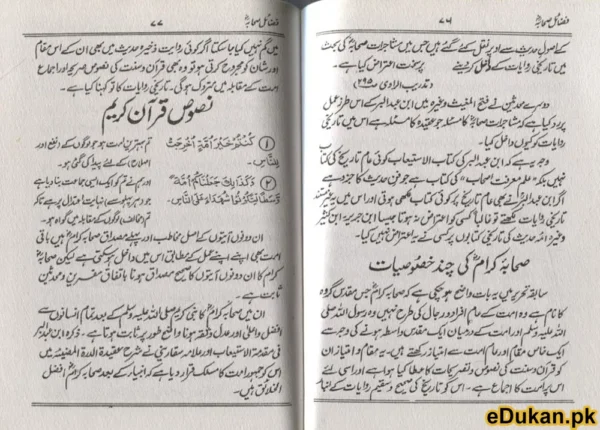 ۷۶
فضائل صحابہؓ
کے اصول حدیث سے اوپر نقل کئے گئے ہیں جس میں مشاجرات صحابہؓ کی بحث
میں تاریخی روایات کے داخل کر دینے پر سخت اعتراض کیا ہے۔
(تدریب الراوی ص ۳۹۵)
دوسرے محدثین نے فتح المغیث وغیرہ میں ابن عبدالبر کے اس طرز عمل
پر رد کیا ہے کہ مشاجرات صحابہؓ کا مسئلہ جو عقیدہ کا مسئلہ ہے اس میں تاریخی
روایات کو کیوں داخل کیا۔
وجہ یہ ہے کہ ابن عبدالبر کی کتاب الاستیعاب کوئی عام تاریخ کی کتاب
نہیں بلکہ "علم معرفت اصحاب" کی کتاب ہے جو فن حدیث کا جزء ہے
اگر ابن عبدالبر نے بھی عام تاریخ پر کوئی کتاب لکھی ہوتی اور اس میں یہ غیر مستند
تاریخی روایات لکھتے تو غالباً کسی کو اعتراض نہ ہوتا جیسا ابن جریر، ابن کثیر
وغیرہ ائمہ حدیث کی تاریخی کتابوں پر کسی نے یہ اعتراض نہیں کیا۔
صحابہ کرامؓ کی چند خصوصیات
سابقہ تحریر میں یہ بات واضح ہو چکی ہے کہ صحابہ کرامؓ جس مقدس گروہ
کا نام ہے وہ امت کے عام افراد و رجال کی طرح نہیں وہ رسول اللہ صلی
اللہ علیہ وسلم اور امت کے درمیان ایک مقدس واسطہ ہونے کی وجہ سے
ایک خاص مقام اور عام امت سے امتیاز رکھتے ہیں۔ یہ مقام و امتیاز ان کو
قرآن و سنت کی نصوص و تصریحات کا عطا کیا ہوا ہے اور اسی لئے
اس پر امت کا اجماع ہے۔ اس کو تاریخ کی صحیح و سقیم روایات کے انبار
۷۷
فضائل صحابہؓ
میں گم نہیں کیا جا سکتا اگر کوئی روایت ذخیرہ حدیث میں بھی ان کے اس مقام
اور شان کو مجروح کرتی ہو تو وہ بھی قرآن و سنت کی نصوص صریحہ اور اجماع
امت کے مقابلہ میں متروک ہوگی۔ تاریخی روایات کا تو کہنا کیا ہے۔
نصوص قرآن کریم
① كُنْتُمْ خَيْرَ اُمَّةٍ اُخْرِجَتْ لِلنَّاسِ۔
تم بہترین امت ہو جو لوگوں کے (نفع اور اصلاح) کے لئے پیدا کی گئی ہو۔
② وَكَذٰلِكَ جَعَلْنٰكُمْ اُمَّةً وَّسَطًا لِّتَكُوْنُوْا شُهَدَآءَ عَلَى النَّاسِ۔
اور ہم نے تم کو ایک ایسی جماعت بنا دیا ہے جو (ہر پہلو سے) نہایت اعتدال پر ہے تاکہ تم (مخالف) لوگوں کے مقابلہ میں گواہ ہو۔
ان دونوں آیتوں کے اصل مخاطب اور پہلے مصداق صحابہ کرامؓ ہیں باقی
امت بھی اپنے اپنے عمل کے مطابق اس میں داخل ہو سکتی ہے لیکن صحابہؓ
کرام کا ان دونوں آیتوں کا صحیح مصداق ہونا باتفاق مفسرین و محدثین
ثابت ہے۔
ان میں صحابہ کرامؓ کا نبی کریم صلی اللہ علیہ وسلم کے بعد تمام انسانوں سے
افضل و اعلیٰ اور عدل و ثقہ ہونا واضح طور پر ثابت ہوتا ہے۔ ذکرہ ابن عبدالبر
فی مقدمۃ الاستیعاب اور علامہ سفارینی نے شرح عقیدۃ الدرۃ المضیئۃ میں
اس کو جمہور امت کا مسلک قرار دیا ہے کہ انبیاء کے بعد صحابہ کرامؓ افضل
الخلائق ہیں۔
eDukan.pk